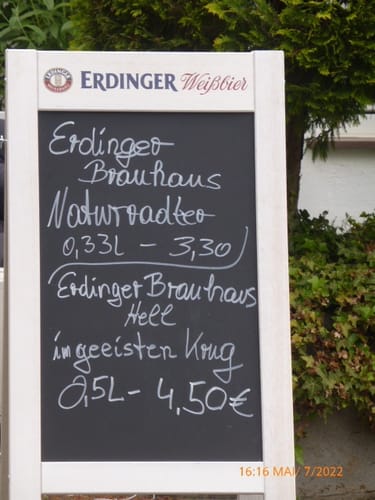 ERDINGER Weißbier
Erdinger
Brauhaus
Naturradler
0,33L - 3,30
Erdinger Brauhaus
Hell
im geeisten Krug
0,5L - 4,50€
16:16 MAI/ 7/2022